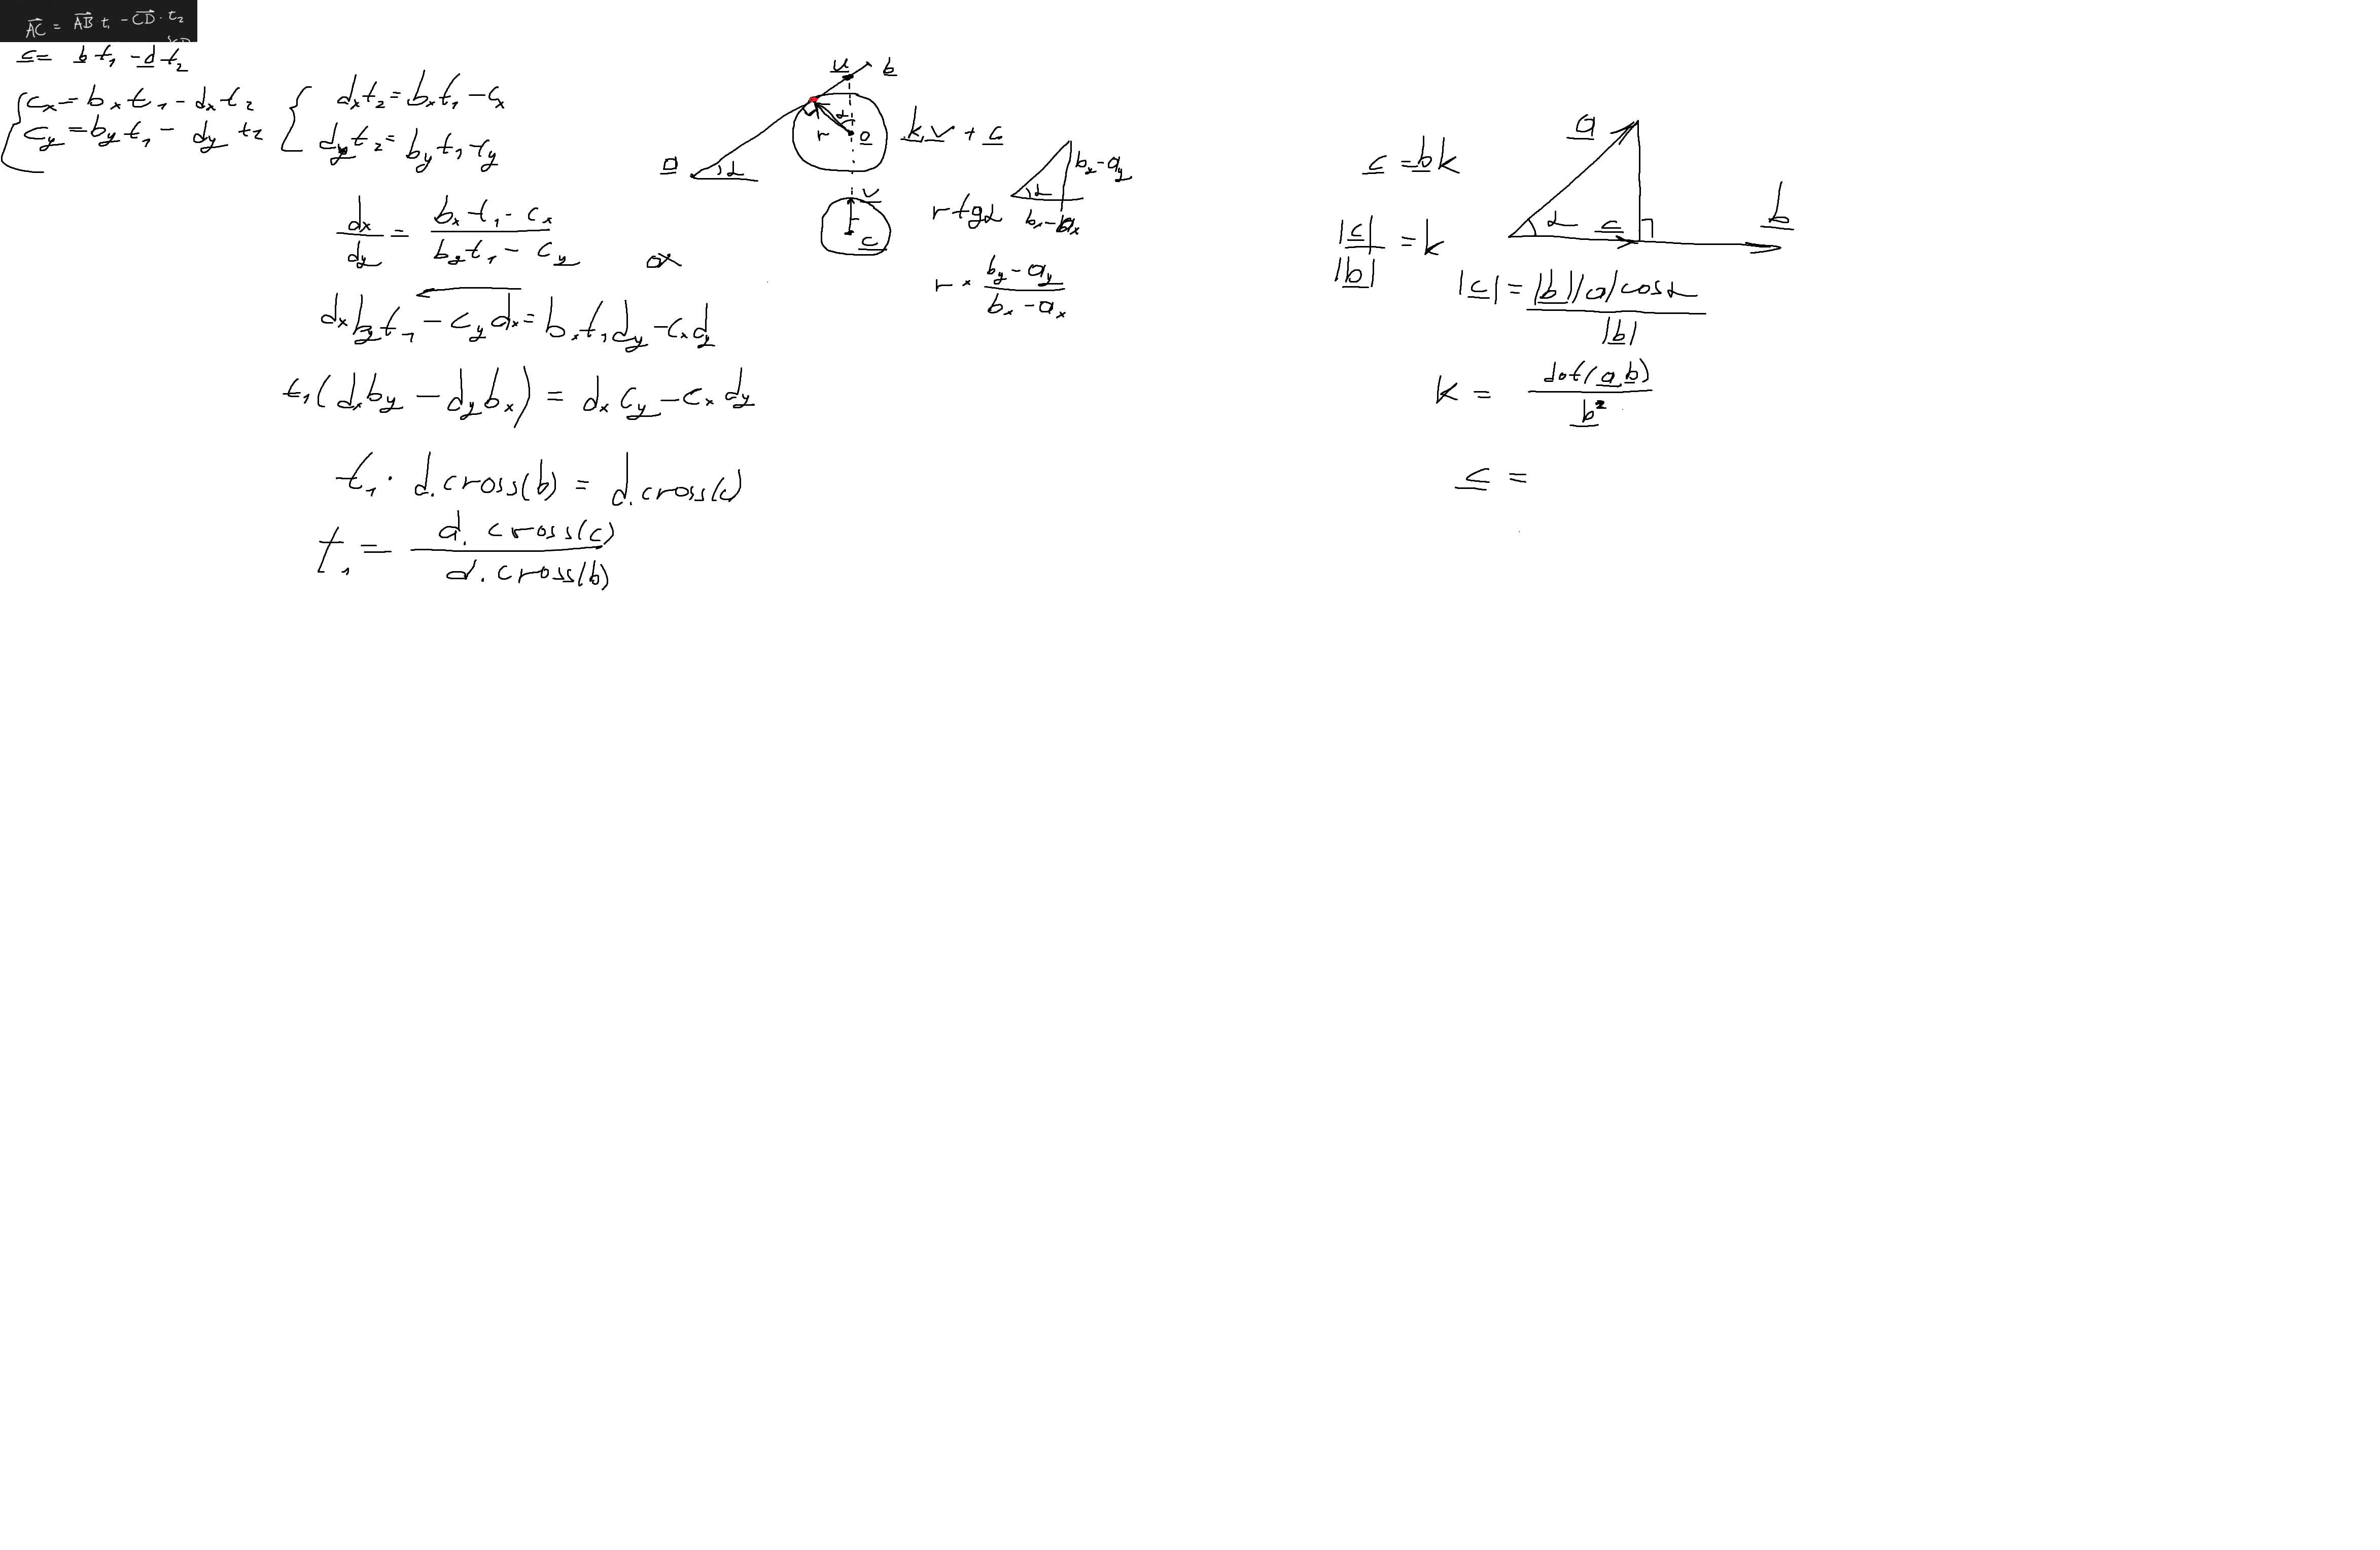 AC = AB t₁ - CD · t₂
c = b t₁ - d t₂
cₓ = bₓ t₁ - dₓ t₂
c_y = b_y t₁ - d_y t₂
dₓ t₂ = bₓ t₁ - cₓ
d_y t₂ = b_y t₁ - c_y
dₓ / d_y = bₓ t₁ - cₓ / b_y t₁ - c_y
dₓ b_y t₁ - c_y dₓ = bₓ t₁ d_y - cₓ d_y
t₁ (dₓ b_y - d_y bₓ) = dₓ c_y - cₓ d_y
t₁ · d.cross(b) = d.cross(c)
t₁ = d.cross(c) / d.cross(b)
u b
α
r o
a α
k v + c
v
r
c
b_y - a_y
α
bₓ - aₓ
r tg α
r * b_y - a_y / bₓ - aₓ
a
α c b
c = b k
|c| / |b| = k
|c| = |b||a| cos α / |b|
k = dot(a, b) / b²
c =